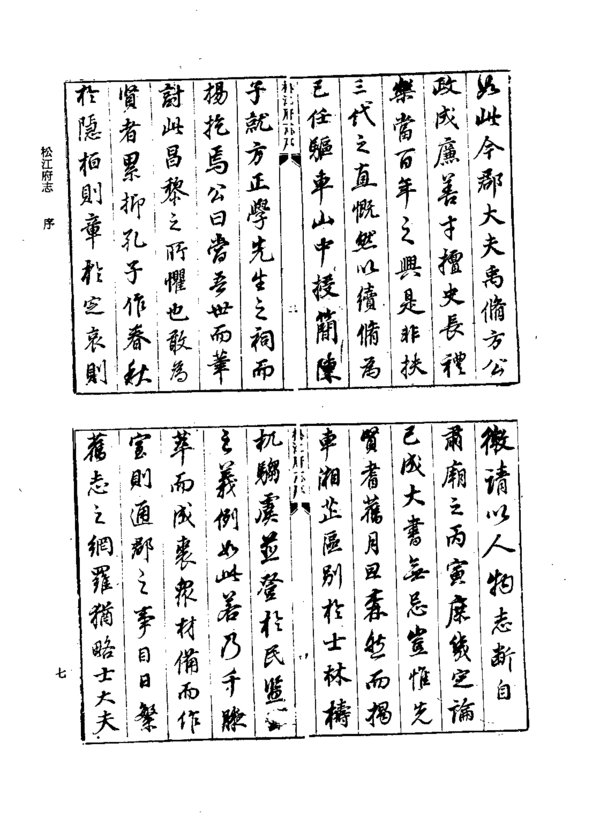 如此今郡大夫禹脩方公
政成廉善才擅史長禮
樂當百年之興是非挾
三代之直慨然以續脩為
已任驅車山中授簡陳
松江府志序
二
子就方正學先生之祠而
揚扢焉公曰當吾世而華
討此昌黎之所懼也敢為
賢者累抑孔子作春秋
於隱桓則章於定哀則
松江府志 序
微請以人物志斷自
肅廟之丙寅庶幾定論
已成大書無忌豈惟先
賢耆舊月旦森然而揭
車湘芷區別於士林檮
松江府志序
杌騶虞並登於民監
之義例如此若乃千腋
萃而成裘眾材備而作
室則通郡之事目日繁
舊志之網羅猶略士大夫
七